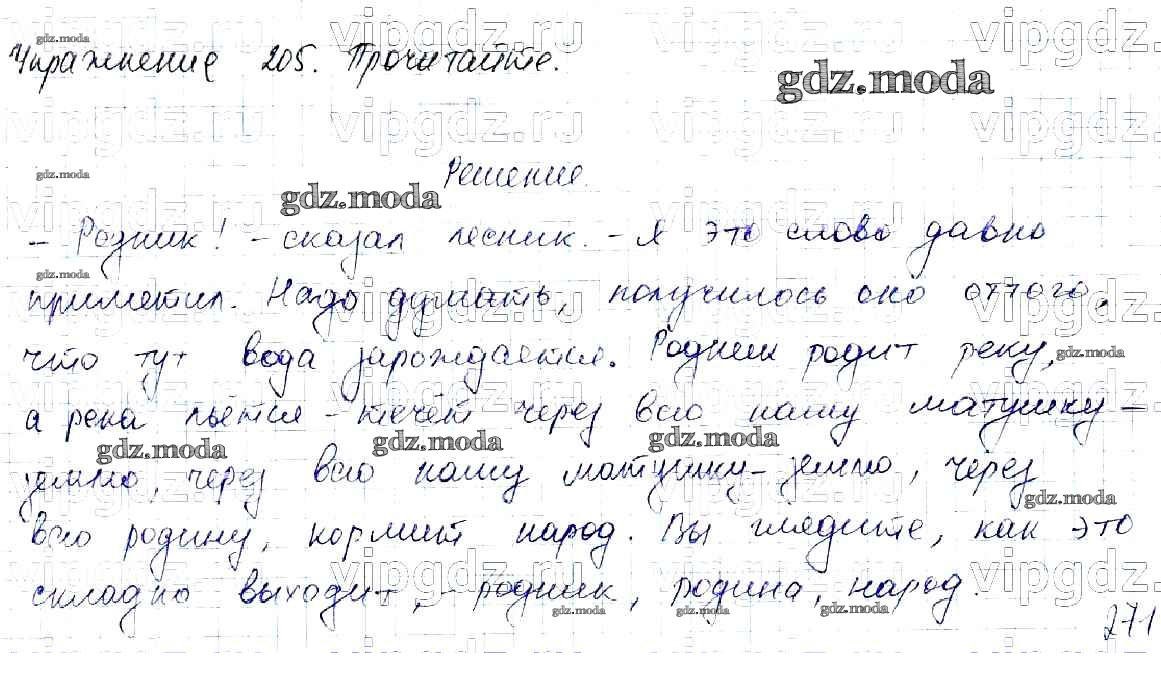 Упражнение 205. Прочитайте.
Решение
- Родник! - сказал лесник. - Я это слово давно
приметил. Надо думать, получилось оно оттого,
что тут вода зарождается. Родник родит реку,
а река льётся - течёт через всю нашу матушку -
землю, через всю нашу матушку - землю, через
всю родину, кормит народ. Вы глядите, как это
складно выходит, - родник, родина, народ.
271
gdz.moda
vipgdz.ru